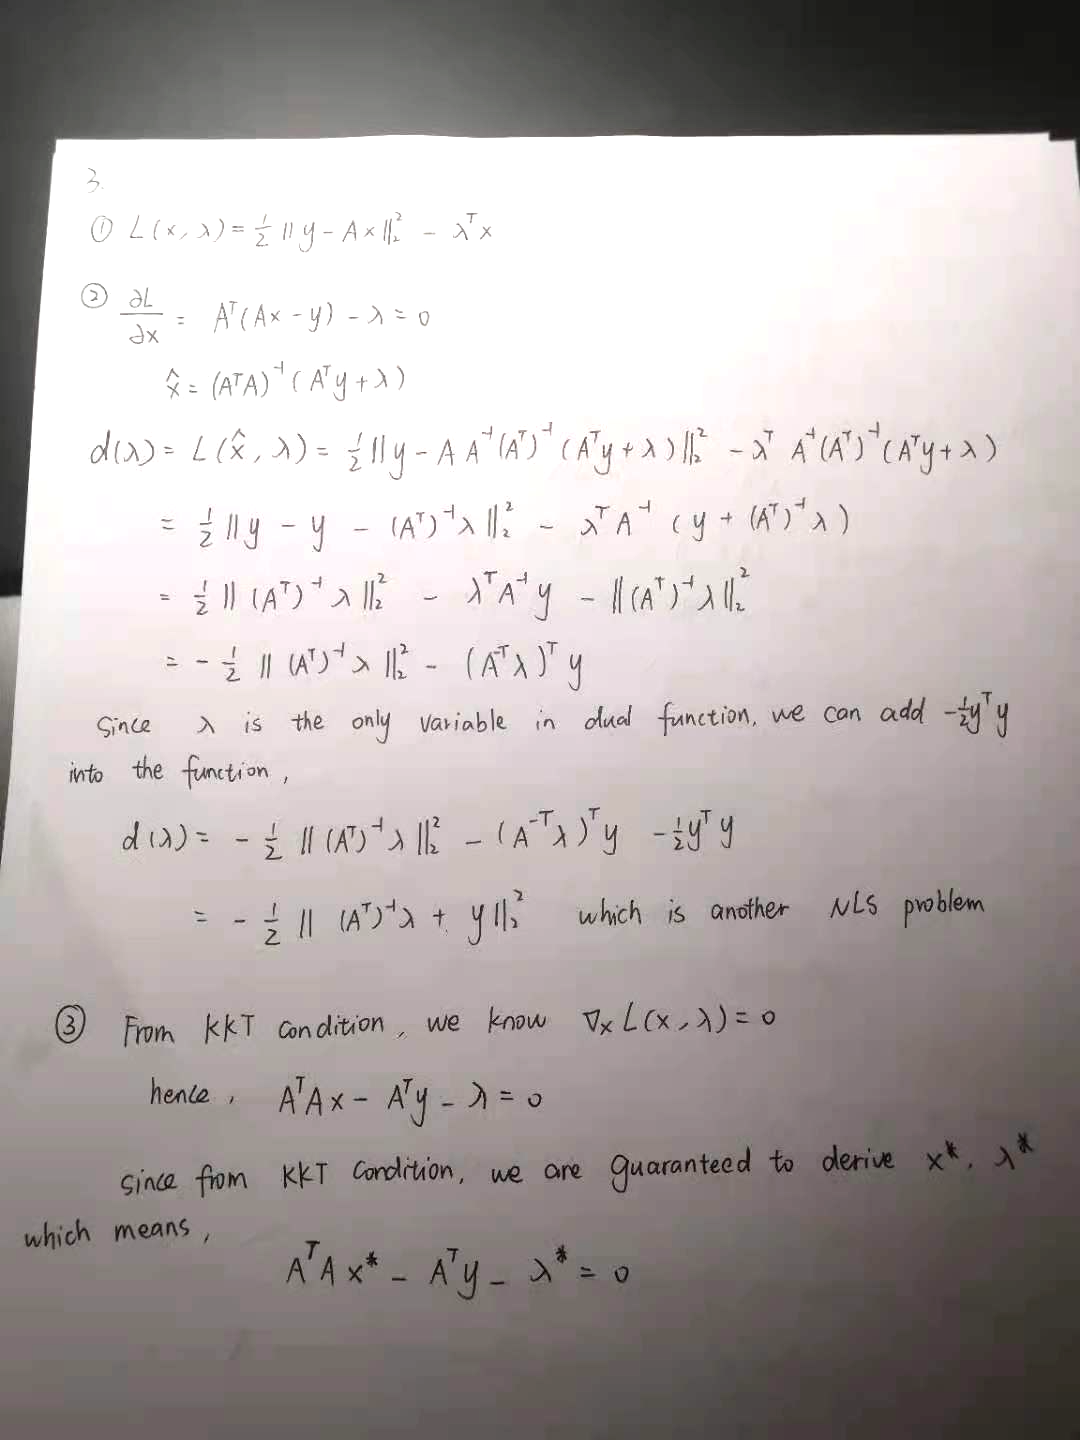 3.
① L(x, λ) = 1/2 ||y - Ax||₂² - λᵀx
② ∂L/∂x = Aᵀ(Ax - y) - λ = 0
x̂ = (AᵀA)⁻¹(Aᵀy + λ)
d(λ) = L(x̂, λ) = 1/2 ||y - A A⁻¹(Aᵀ)⁻¹(Aᵀy + λ)||₂² - λᵀ A⁻¹(Aᵀ)⁻¹(Aᵀy + λ)
= 1/2 ||y - y - (Aᵀ)⁻¹λ||₂² - λᵀA⁻¹(y + (Aᵀ)⁻¹λ)
= 1/2 ||(Aᵀ)⁻¹λ||₂² - λᵀA⁻¹y - ||(Aᵀ)⁻¹λ||₂²
= - 1/2 ||(Aᵀ)⁻¹λ||₂² - (A⁻ᵀλ)ᵀy
Since λ is the only variable in dual function, we can add -1/2yᵀy
into the function,
d(λ) = - 1/2 ||(Aᵀ)⁻¹λ||₂² - (A⁻ᵀλ)ᵀy - 1/2yᵀy
= - 1/2 ||(Aᵀ)⁻¹λ + y||₂² which is another NLS problem
③ From KKT condition, we know ∇ₓL(x, λ) = 0
hence, AᵀAx - Aᵀy - λ = 0
since from KKT Condition, we are guaranteed to derive x*, λ*
which means,
AᵀAx* - Aᵀy - λ* = 0